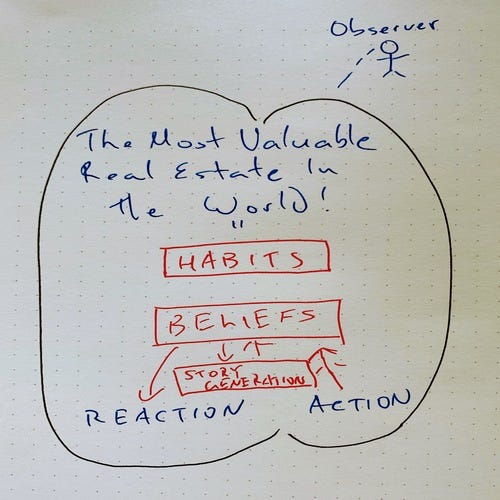 Observer
The Most Valuable
Real Estate In
the World!
HABITS
BELIEFS
STORY
GENERATION
REACTION
ACTION